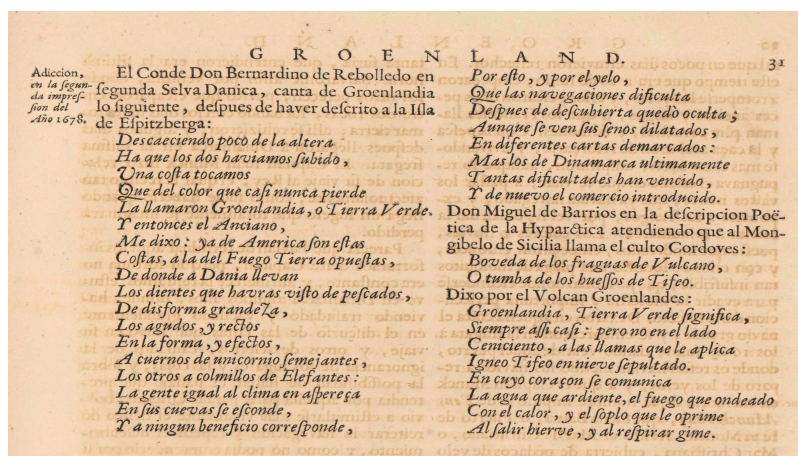 GROENLAND.
31
Adiccion,
en la segun-
da impres-
sion del
Año 1678.
El Conde Don Bernardino de Rebolledo en
segunda Selva Danica, canta de Groenlandia
lo siguiente, despues de haver descrito a la Isla
de Espitzberga:
Descaeciendo poco de la altera
Ha que los dos haviamos subido,
Una costa tocamos
Que del color que casi nunca pierde
La llamaron Groenlandia, o Tierra Verde.
Y entonces el Anciano,
Me dixo: ya de America son estas
Costas, a la del Fuego Tierra opuestas,
De donde a Dania llevan
Los dientes que havras visto de pescados,
De disforma grandeza,
Los agudos, y rectos
En la forma, y efectos,
A cuernos de unicornio semejantes,
Los otros a colmillos de Elefantes:
La gente igual al clima en aspereça
En sus cuevas se esconde,
Y a ningun beneficio corresponde,
Por esto, y por el yelo,
Que las navegaciones dificulta
Despues de descubierta quedò oculta;
Aunque se ven sus senos dilatados,
En diferentes cartas demarcados:
Mas los de Dinamarca ultimamente
Tantas dificultades han vencido,
Y de nuevo el comercio introducido.
Don Miguel de Barrios en la descripcion Poë-
tica de la Hyparctica atendiendo que al Mon-
gibelo de Sicilia llama el culto Cordoves:
Boveda de los fraguas de Vulcano,
O tumba de los huessos de Tifeo.
Dixo por el Volcan Groenlandes:
Groenlandia, Tierra Verde significa,
Siempre assi casi: pero no en el lado
Ceniciento, a las llamas que le aplica
Igneo Tifeo en nieve sepultado.
En cuyo coraçon se comunica
La agua que ardiente, el fuego que ondeado
Con el calor, y el soplo que le oprime
Al salir hierve, y al respirar gime.